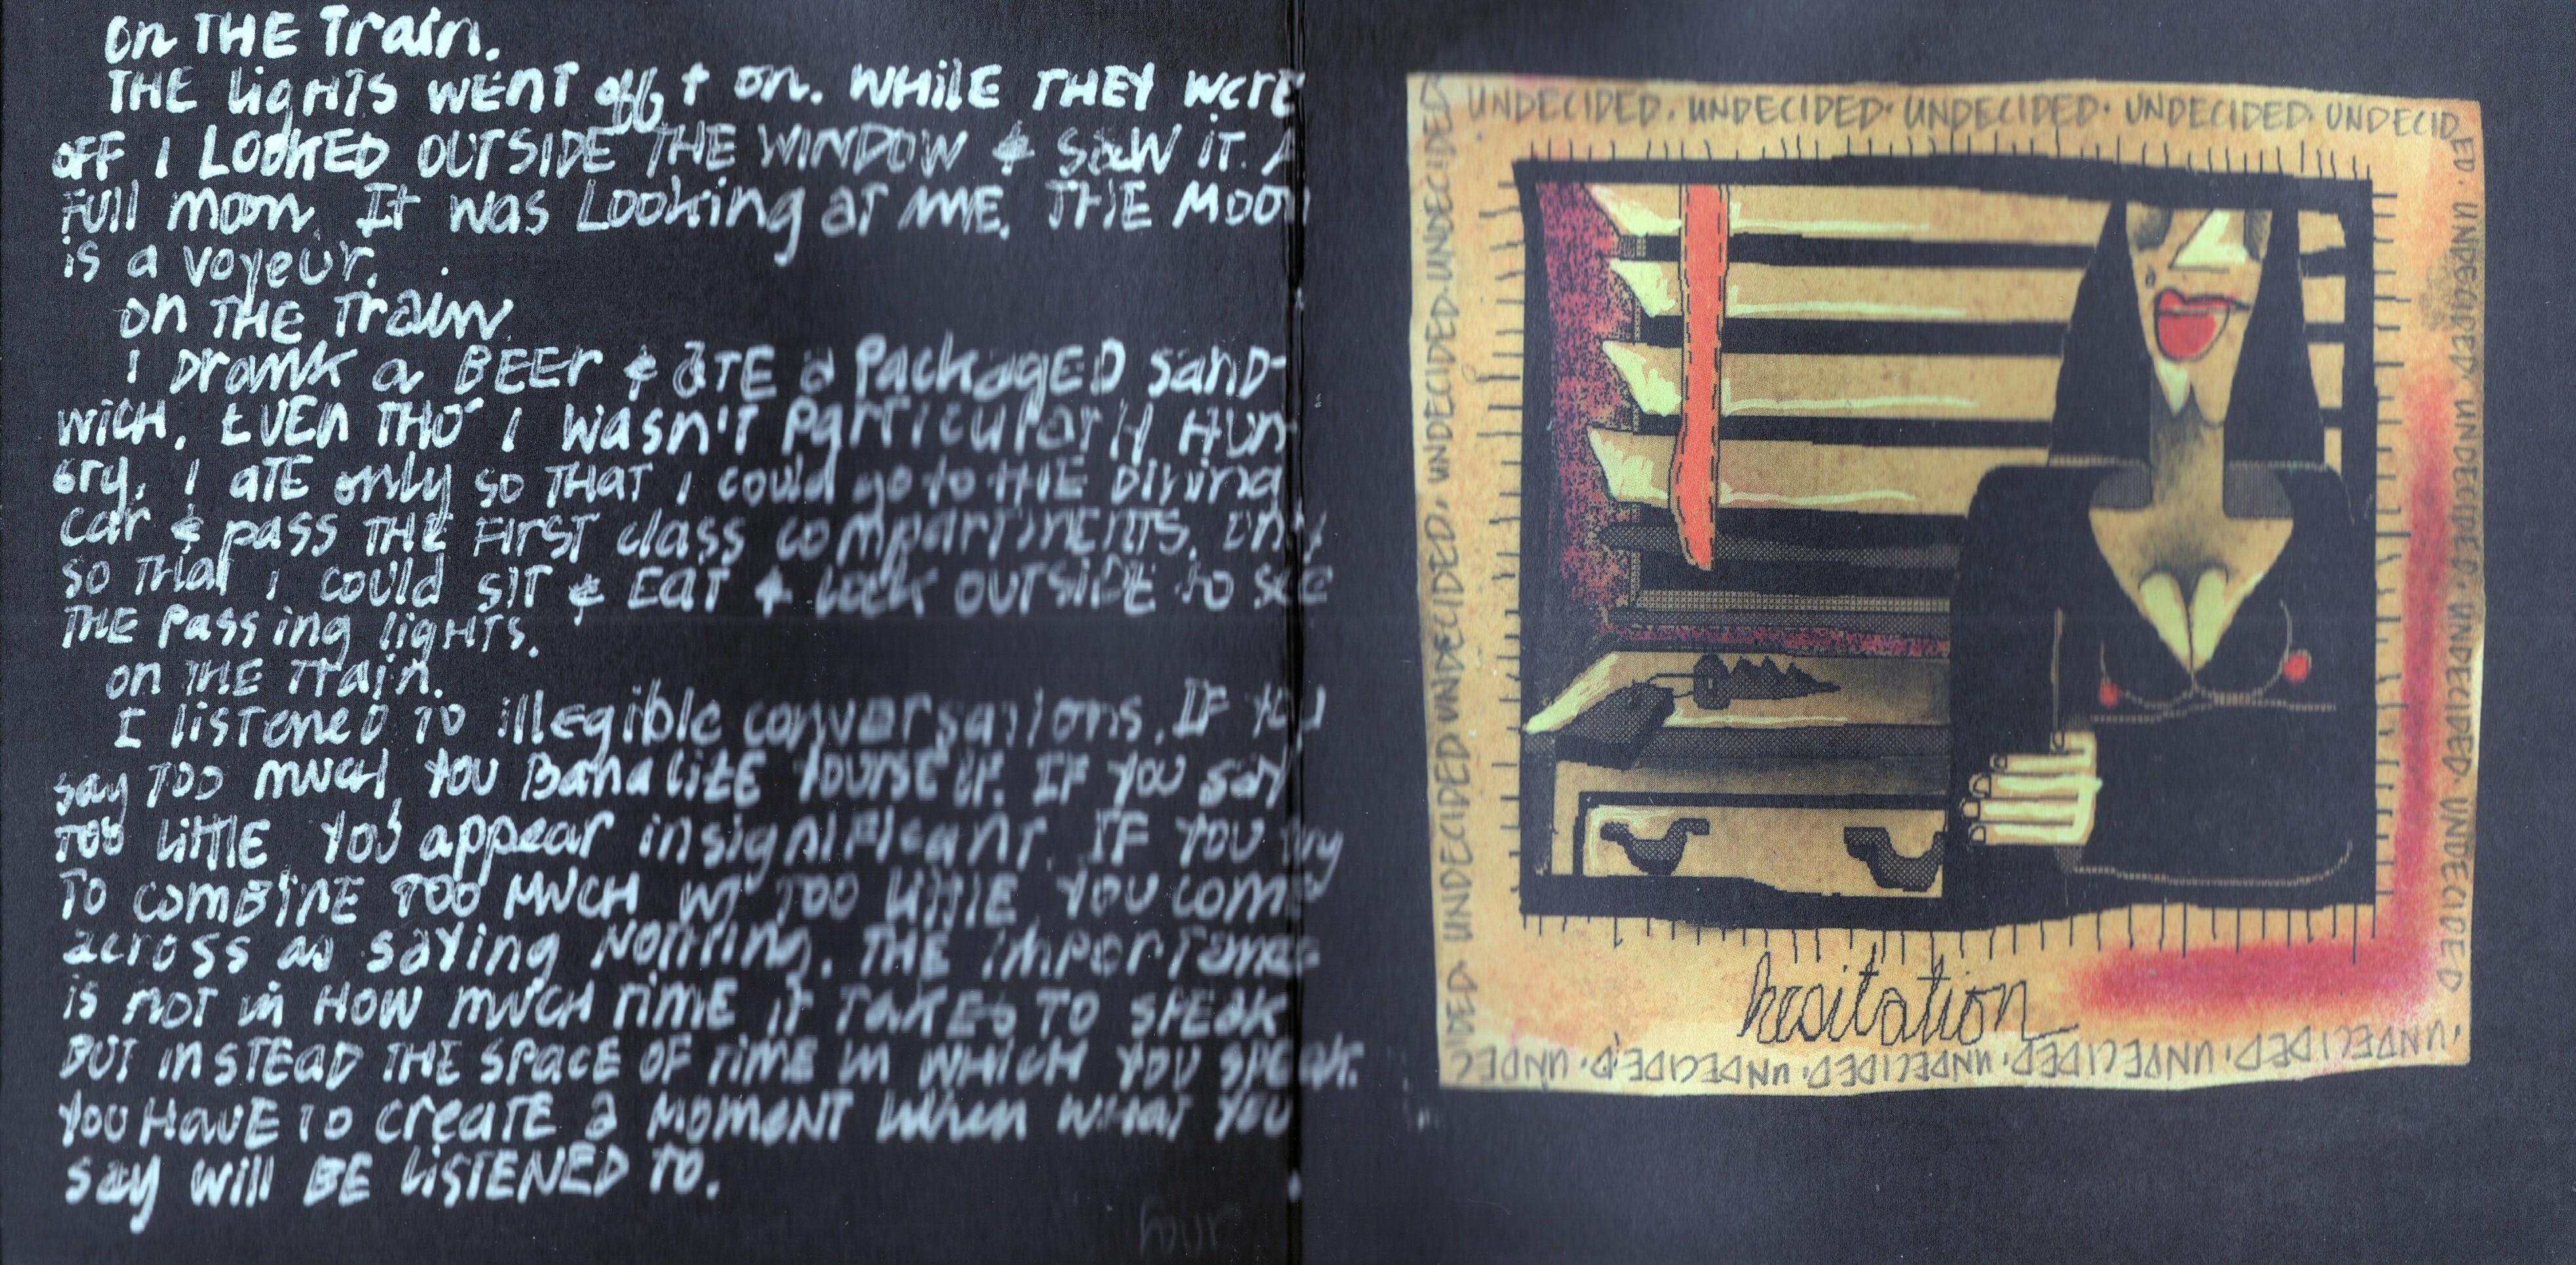 on THE Train.
THE ligHTS WENT off + on. WHILE THEY WERE
OFF I LOOKED OUTSIDE THE WINDOW & SAW IT. A
FULL moon. It was Looking aT ME. THE MOON
is a voyeur.
on THE Train
I Drank a BEEr & ATE a PackagED SanD-
wicH. EVEN THO' I wasn'T ParTicularly HUN-
Gry. I aTE only so THAT I could go to tHE Dining
car & pass THE FIRST class comparTMENTS. Only
so THaT I could SIT & EaT & LOOK OUTSIDE to SEE
THE Passing ligHTS.
on THE Train.
I lisTened TO illegible conversaTions. IF YOU
say TOO MucH, YOU BanalizE YOURSELF. IF YOU say
TOO LiTTlE, YOU appear insignificanT. IF YOU Try
TO comBINE TOO MUCH w/ TOO LITTLE YOU COME
across as saying NOTHING. THE imporTance
is noT in HOW mUCH TIME iT TakEs TO SPEAK
BUT inSTEAD THE SPACE OF TIME in WHICH YOU SPEak.
YOU HAVE TO creaTE a MOMENT WHEN WHAT YOU
say will BE LISTENED TO.
four
UNDECIDED. UNDECIDED. UNDECIDED. UNDECIDED. UNDECIDED. UNDECIDED. UNDECIDED. UNDECIDED. UNDECIDED. UNDECIDED. UNDECIDED
UNDECIDED. UNDECIDED. UNDECIDED. UNDECIDED. UNDECIDED. UNDEC
IDED. UNDECIDED UNDECIDED UNDECIDED. UNDECIDED. UNDECIDED. UNDECIDED
hesitation